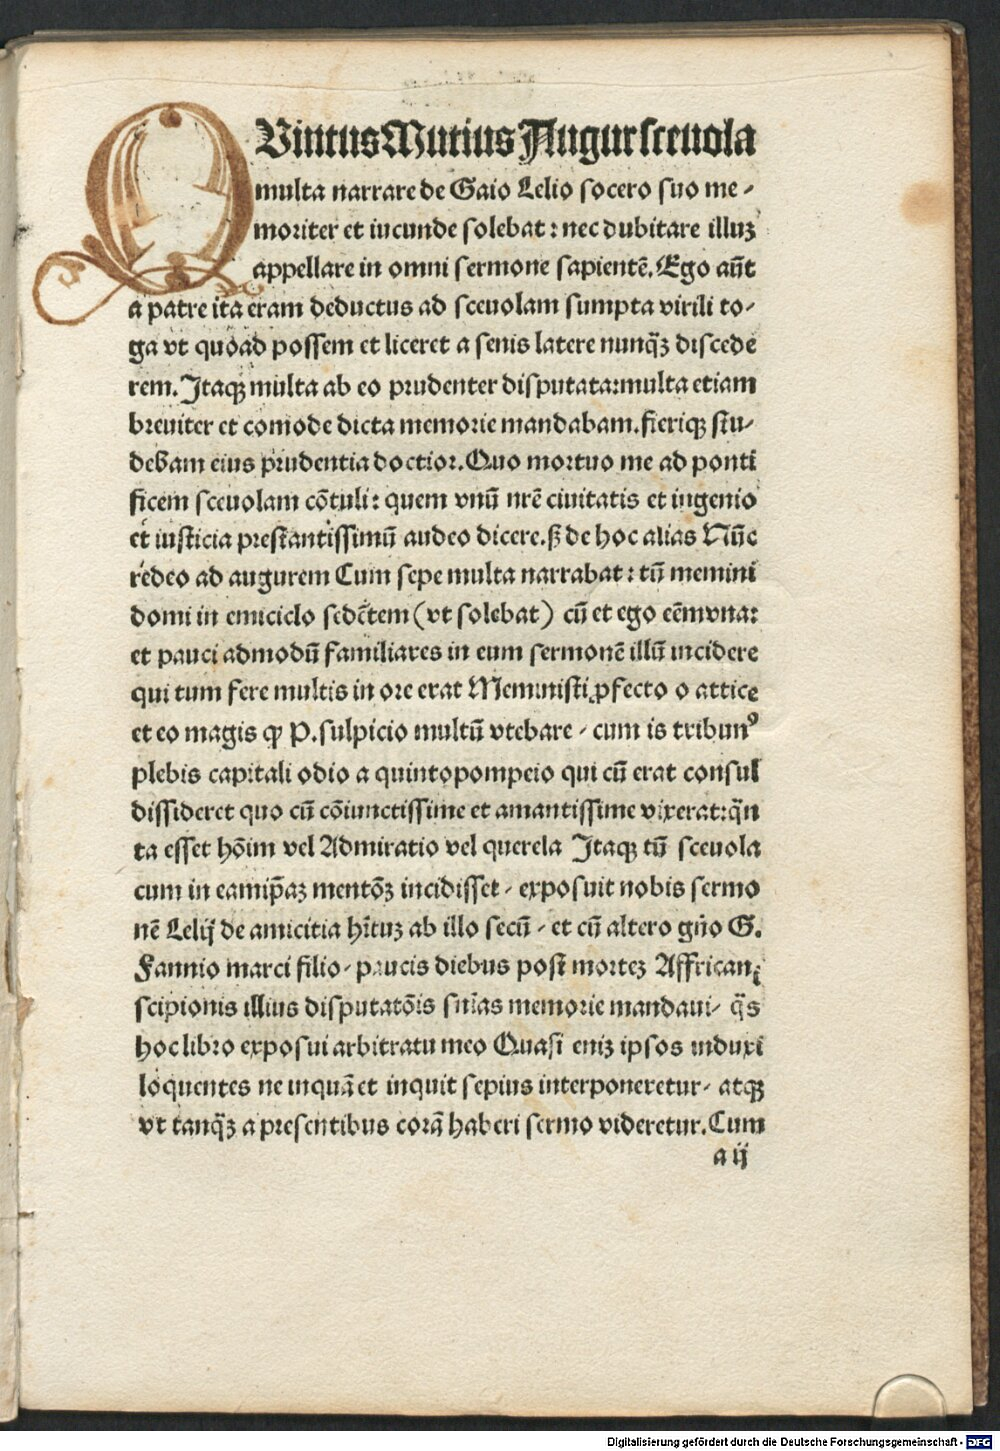 QVintus Mutius Augur sceuola
multa narrare de Gaio Lelio socero suo me-
moriter et iucunde solebat: nec dubitare illuꝫ
appellare in omni sermone sapientē. Ego aūt
a patre ita eram deductus ad sceuolam sumpta virili to-
ga vt quoad possem et liceret a senis latere nunq̄ꝫ discede
rem. Itaqꝫ multa ab eo prudenter disputata: multa etiam
breuiter et comode dicta memorie mandabam. fieriqꝫ stu-
debam eius prudentia doctior. Quo mortuo me ad ponti
ficem sceuolam cōtuli: quem vnū nrē ciuitatis et ingenio
et iusticia prestantissimū audeo dicere. sꝫ de hoc alias Nūc
redeo ad augurem Cum sepe multa narrabat: tū memini
domi in emiciclo sedētem (vt solebat) cū et ego eēm vna:
et pauci admodū familiares in eum sermonē illū incidere
qui tum fere multis in ore erat Meministi ꝓfecto o attice
et eo magis qꝫ P. sulpicio multū vtebare - cum is tribunꝰ
plebis capitali odio a quinto pompeio qui cū erat consul
dissideret quo cū cōiunctissime et amantissime vixerat: q̄n
ta esset hōim vel Admiratio vel querela Itaqꝫ tū sceuola
cum in eam ip̄aꝫ mentōꝫ incidisset - exposuit nobis sermo
nē Lelij de amicitia hītuꝫ ab illo secū - et cū altero gn̄o G.
Fannio marci filio - paucis diebus post morteꝫ Affricani
scipionis illius disputatōis snīas memorie mandaui - q̄s
hoc libro exposui arbitratu meo Quasi eniꝫ ipsos induxi
loquentes ne inquā et inquit sepius interponeretur - atqꝫ
vt tanq̄ꝫ a presentibus corā haberi sermo videretur. Cum
a ij
Digitalisierung gefördert durch die Deutsche Forschungsgemeinschaft - DFG